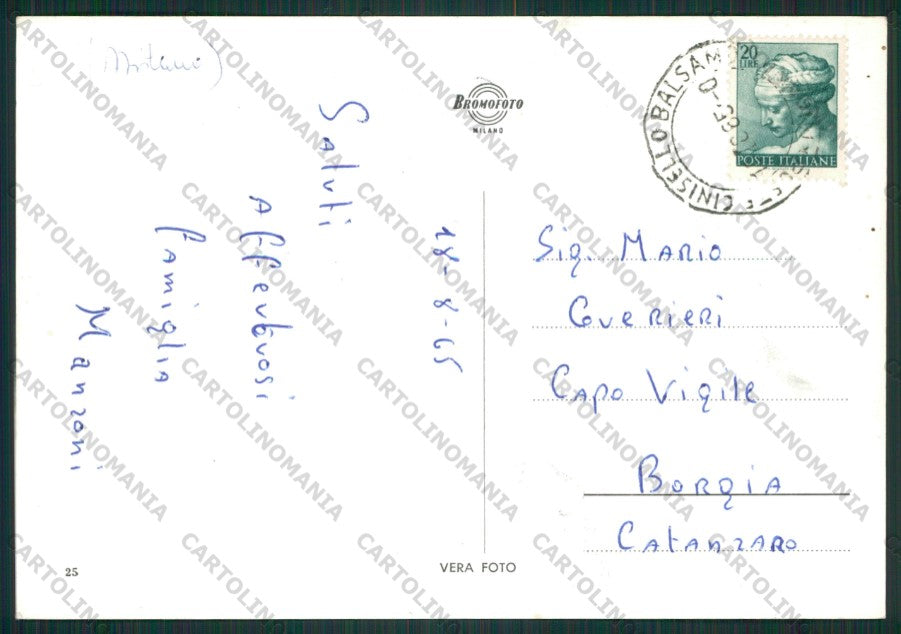 (Milano)
BROMOFOTO
MILANO
20
LIRE
POSTE ITALIANE
CINISELLO BALSAMO
Saluti
Affettuosi
famiglia
Manzoni
18-8-65
Sig. Mario
Guerieri
Capo Vigile
Borgia
Catanzaro
25
VERA FOTO
CARTOLINOMANIA